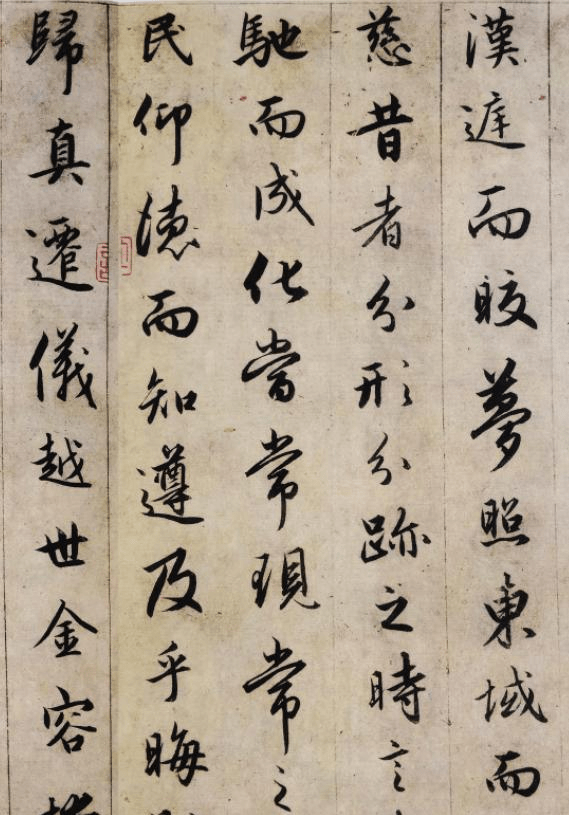 漢庭而皎夢照東域而
慈昔者分形分跡之時言
馳而成化當常現常之
民仰德而知遵及乎晦
歸真遷儀越世金容